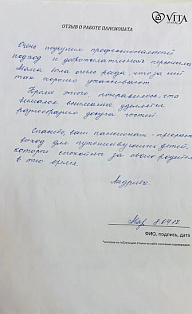 VITA
ОТЗЫВ О РАБОТЕ ПАНСИОНАТА
Очень подкупил профессиональный
подход и доброжелательный персонал.
Мама была очень рада, что за ней
так хорошо ухаживают.
Кроме этого понравилось, что
внимание уделяется
досуга гостей.
Спасибо, ваш пансионат - прекрасный
выход для путешествующих детей,
которые спокойны за своих родителей
в это время.
ФИО, подпись, дата